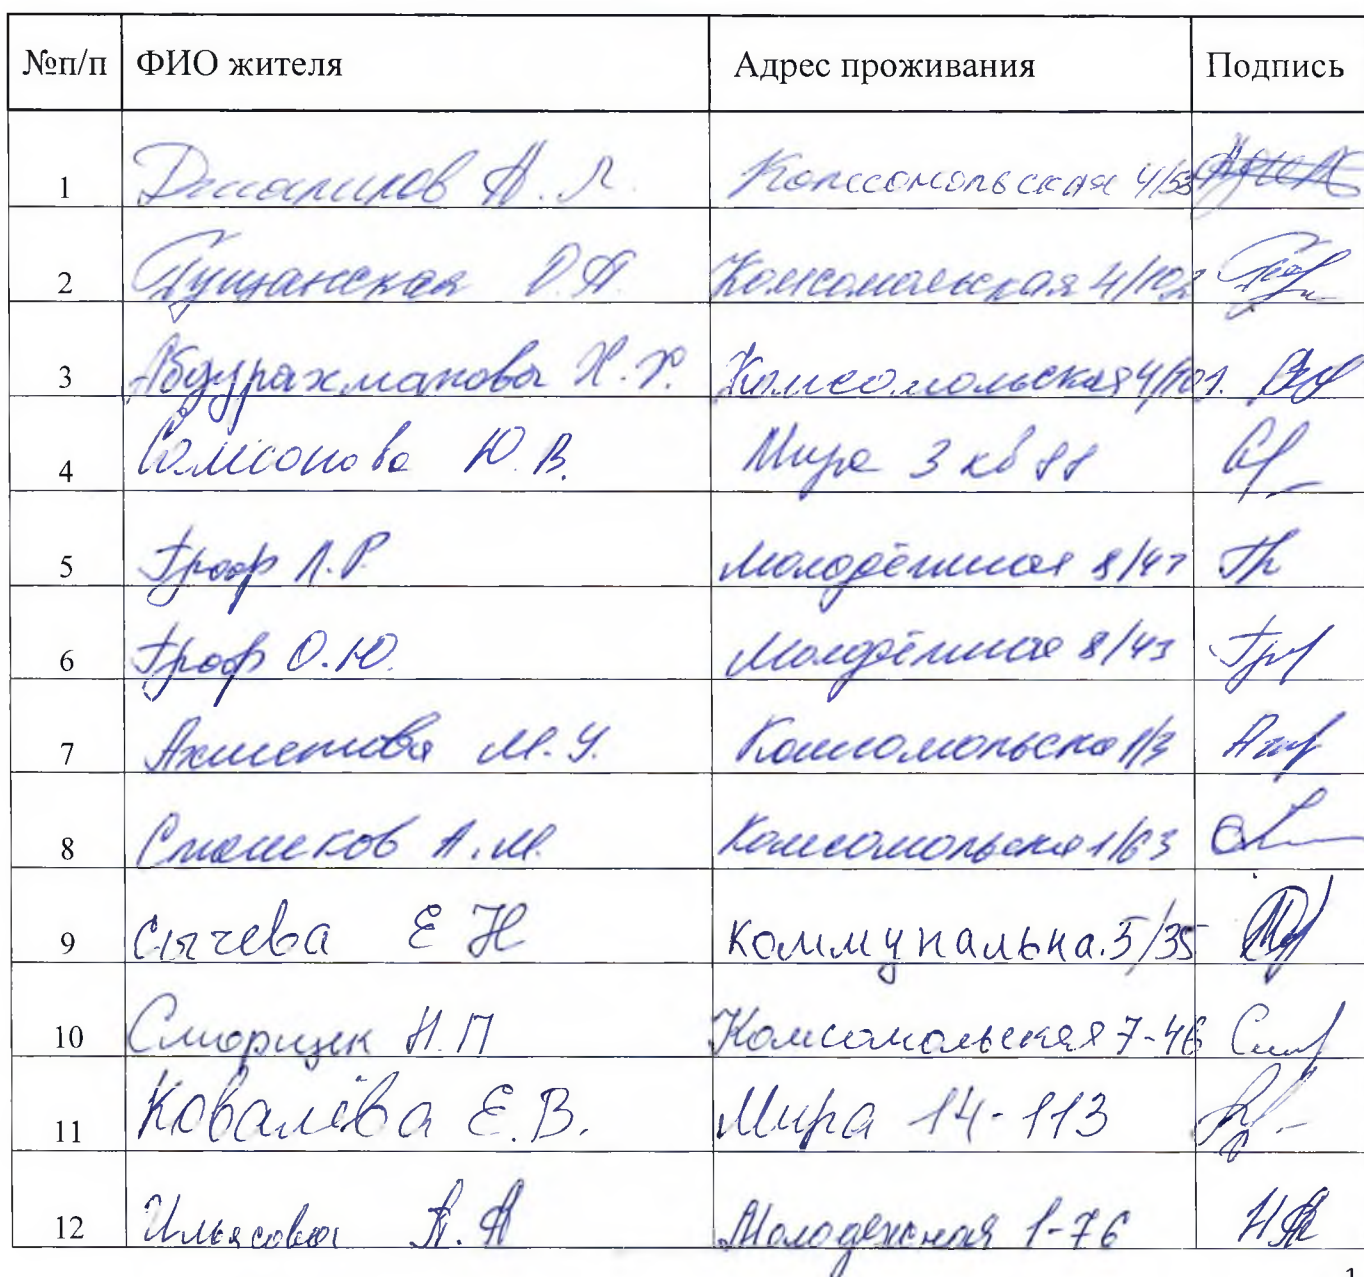 №п/п ФИО жителя Адрес проживания Подпись
1 А. Л. Комсомольская 4/53
2 Пущанская О.А. Комсомольская 4/102
3 Абдурахманова Х.Х. Комсомольская 4/101.
4 Самсонова Ю.В. Мира 3 кв 88
5 Граф Л.Р. Молодёжная 8/47
6 Граф О.Ю. Молодёжная 8/43
7 Ахметова М.У. Комсомольска 1/3
8 А.М. Комсомольска 1/63
9 Сычева Е Н Коммунальна.5/35
10 Сморщек Н.П Комсомольская 7-46
11 Ковалёва Е.В. Мира 14-113
12 Ильясова А.А Молодежная 1-76
1